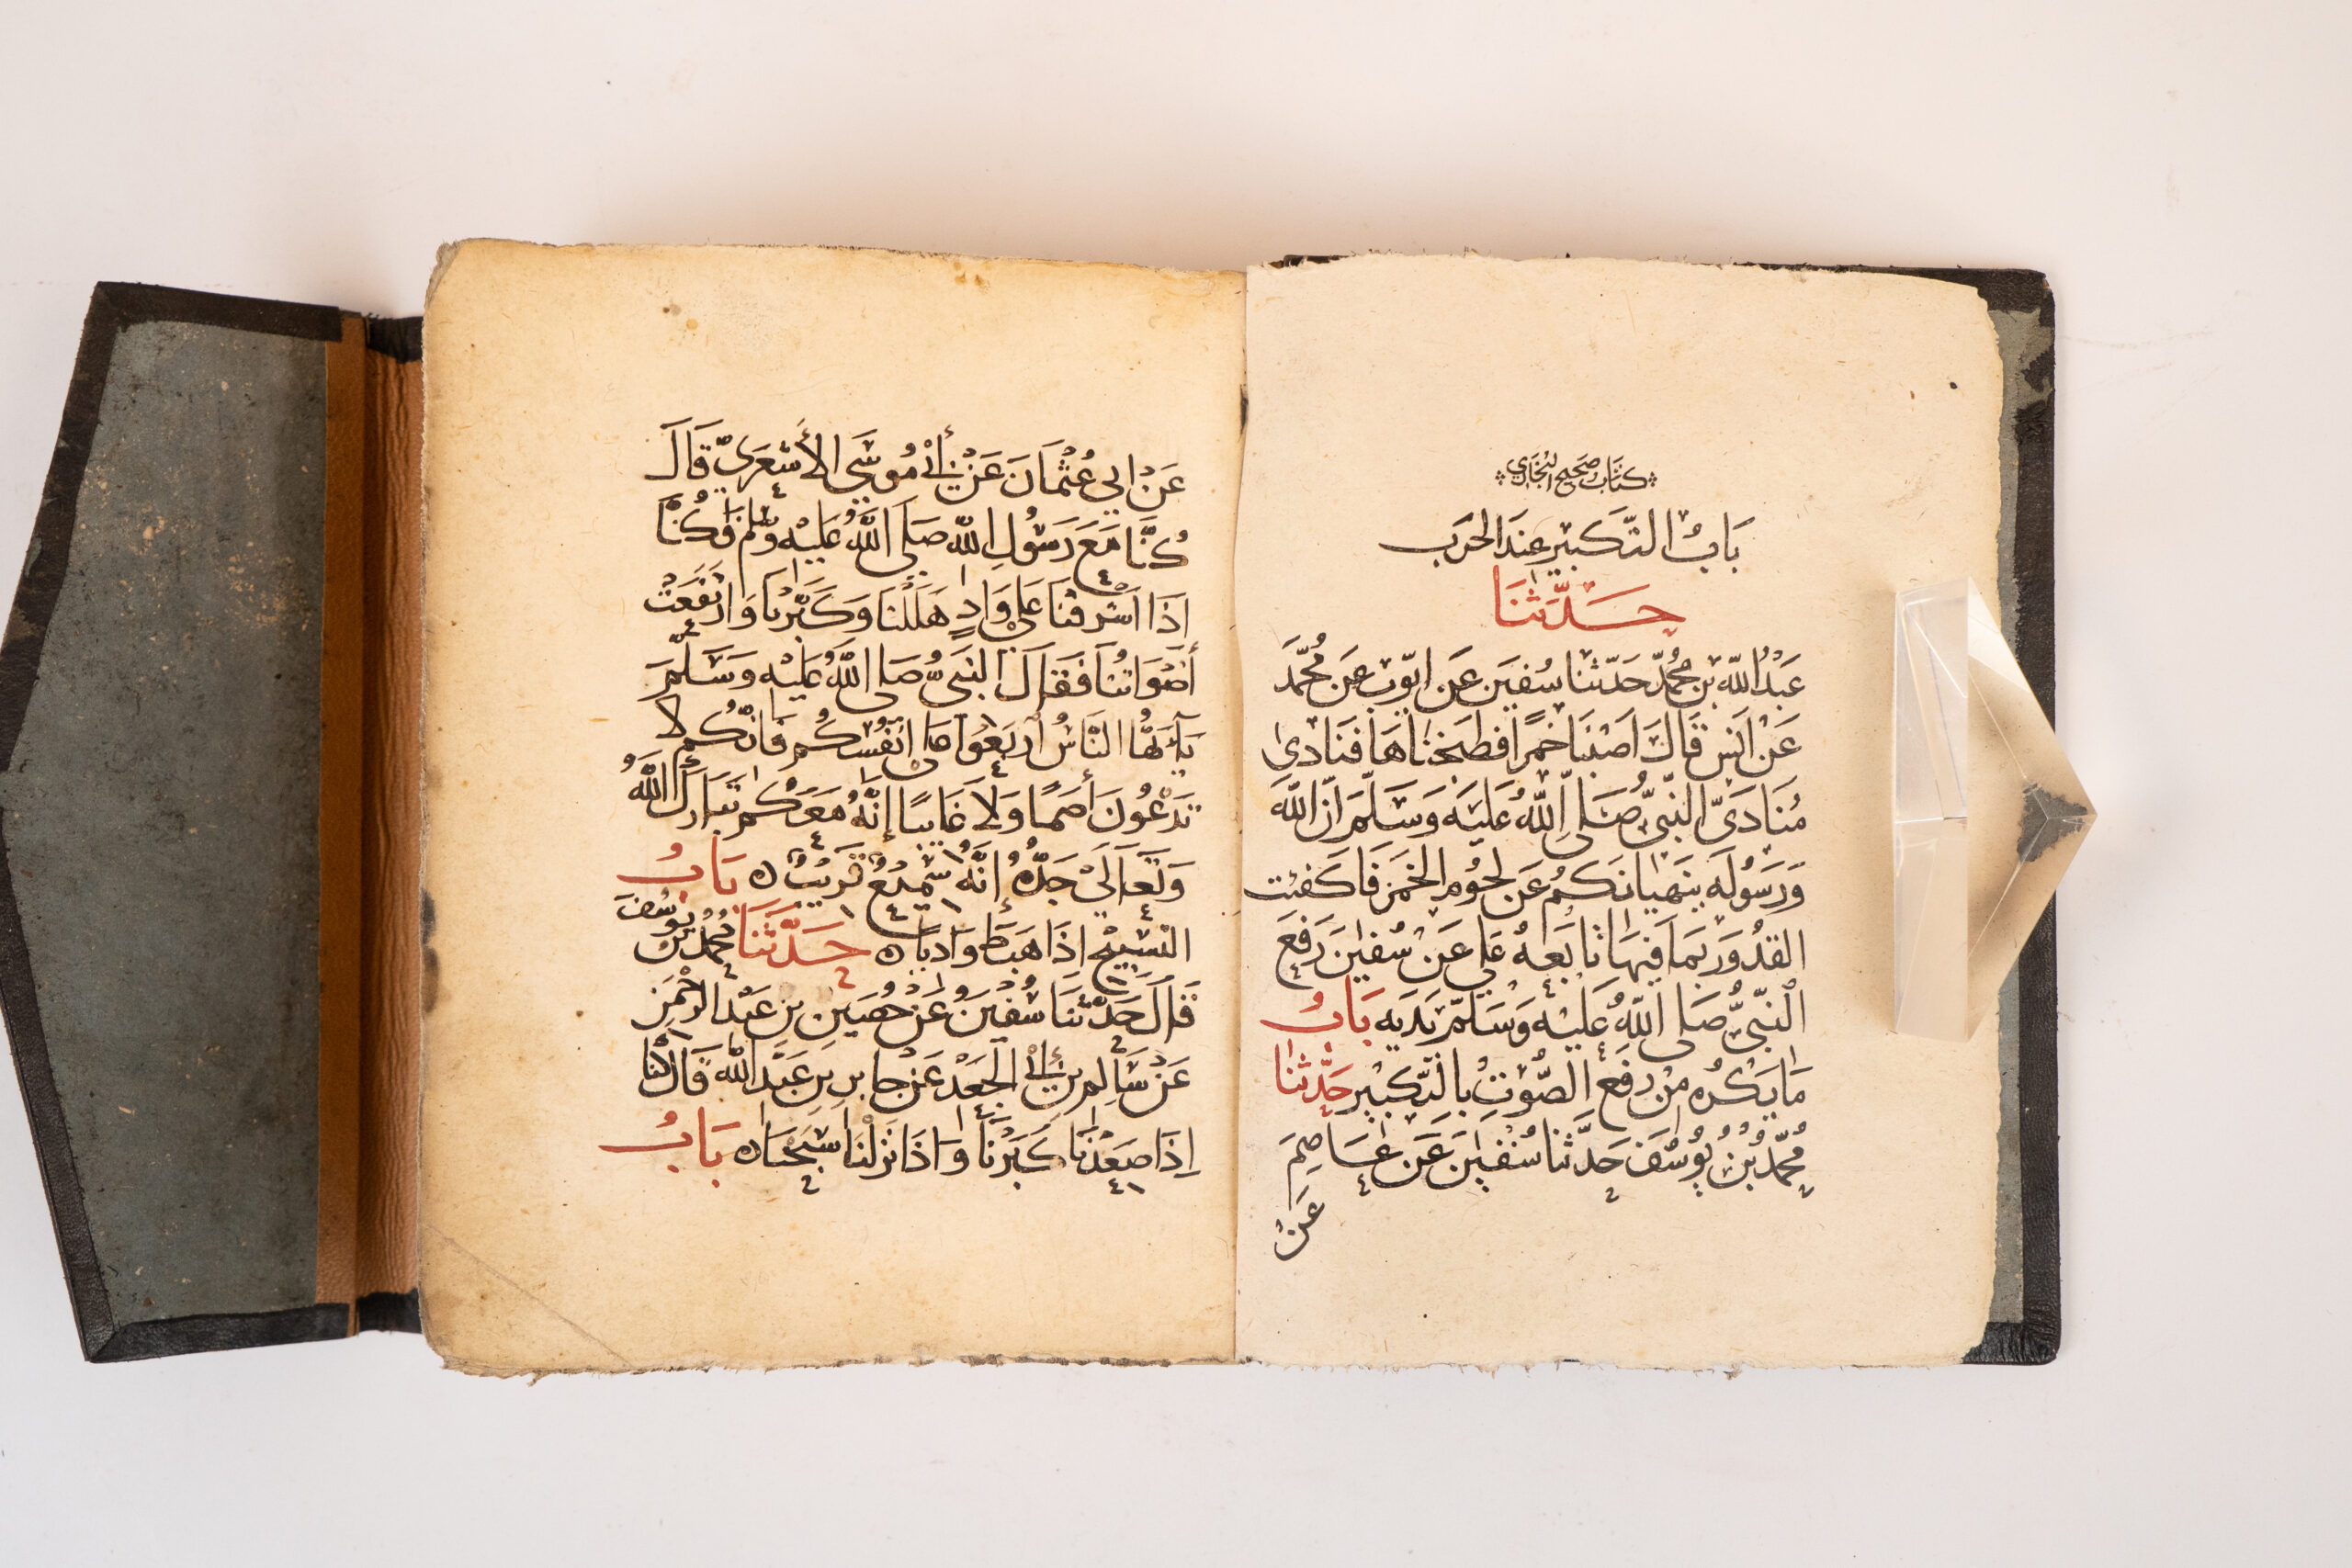 كتاب صحيح البخاري
بَابُ التَّكبير عِندَ الحَرب
حَدَّثنَا
عَبدُ اللّه بن مُحمّد حَدّثنا سُفيَن عَن ايّوب عَن مُحمَّد
عَنْ انَس قَالَ اصَبْنَا خمرًا فطبخناهَا فَنَادىٰ
مُنَادَىّ النّبيُّ صَلى اللّهُ عَليَه وَسَلّمَ انّ اللّهَ
وَرَسُولَه ينهيانكمُ عَن لحُوم الخمَر فَاكفئت
القدُورَ بمَا فيهَا تابَعهُ عَلي عَن سُفيٰنَ رَفعَ
النّبيُّ صَلى اللّهُ عَليْه وَسَلّمَ يَدَيه بَابُ
مَا يَكْرُه مِنْ رَفعَ الصَّوْتِ بالتّكبْير حَدَّثنا
مُحمّدُ بْنُ يُوسُفَ حَدَّثنا سُفيٰنَ عَن عَاصِمَ
عَنْ
عَنْ ابي عُثْمَانَ عَنْ أبي مُوسَى الأشعَريّ قَالَ
كُنَّا مَعَ رَسُولِ اللّه صَلى اللَّهُ عَليْه وسّلم فَكُنَّا
اذَا اَشْرفْنَا عَلي وَادٍ هَلَّلْنا وَكَبَّرْنا وَارتَفَعَتْ
أصْوَاتنُا فَقَالَ النبَيُّ صَلى اللّهُ عَليْه وَسَلّمَ
يَآءيّهَا النَّاسُ ارْبَعُوا عَلى انفُسكُم فَانّكُم لا
تَدْعُونَ أصَمًا وَلا غَايبًا إنّهُ مَعَكُم تبَارَكَ اللّهُ
وَتَعَالَى جَدُّهُ إنَّهُ سَمِيْعٌ قَريْبٌ ه بَابُ
التسْبيْح اذَا هَبَطَ وَاديًا ه حَدَّثَنَا مُحمّدُ بْنُ يوُسُفَ
قَالَ حَدَّثنَا سُفْيٰنَ عَنْ حُصَيَن بن عَبْد الرحْمٰن
عَنْ سَالم بن أبي الجَعْد عَنْ جابر بن عَبْد اللّه قَالَ كُنَّا
اِذَا صَعِدْنَا كَبَّرْنَا وَاذَا نَزلْنَا سَبَّحْنَا ه بَابُ